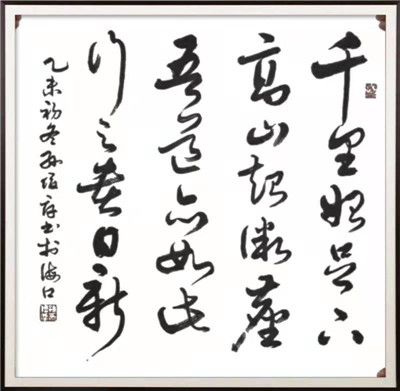 千里始足下
高山起微塵
吾道亦如此
行之貴日新
乙未初冬孫書於海口